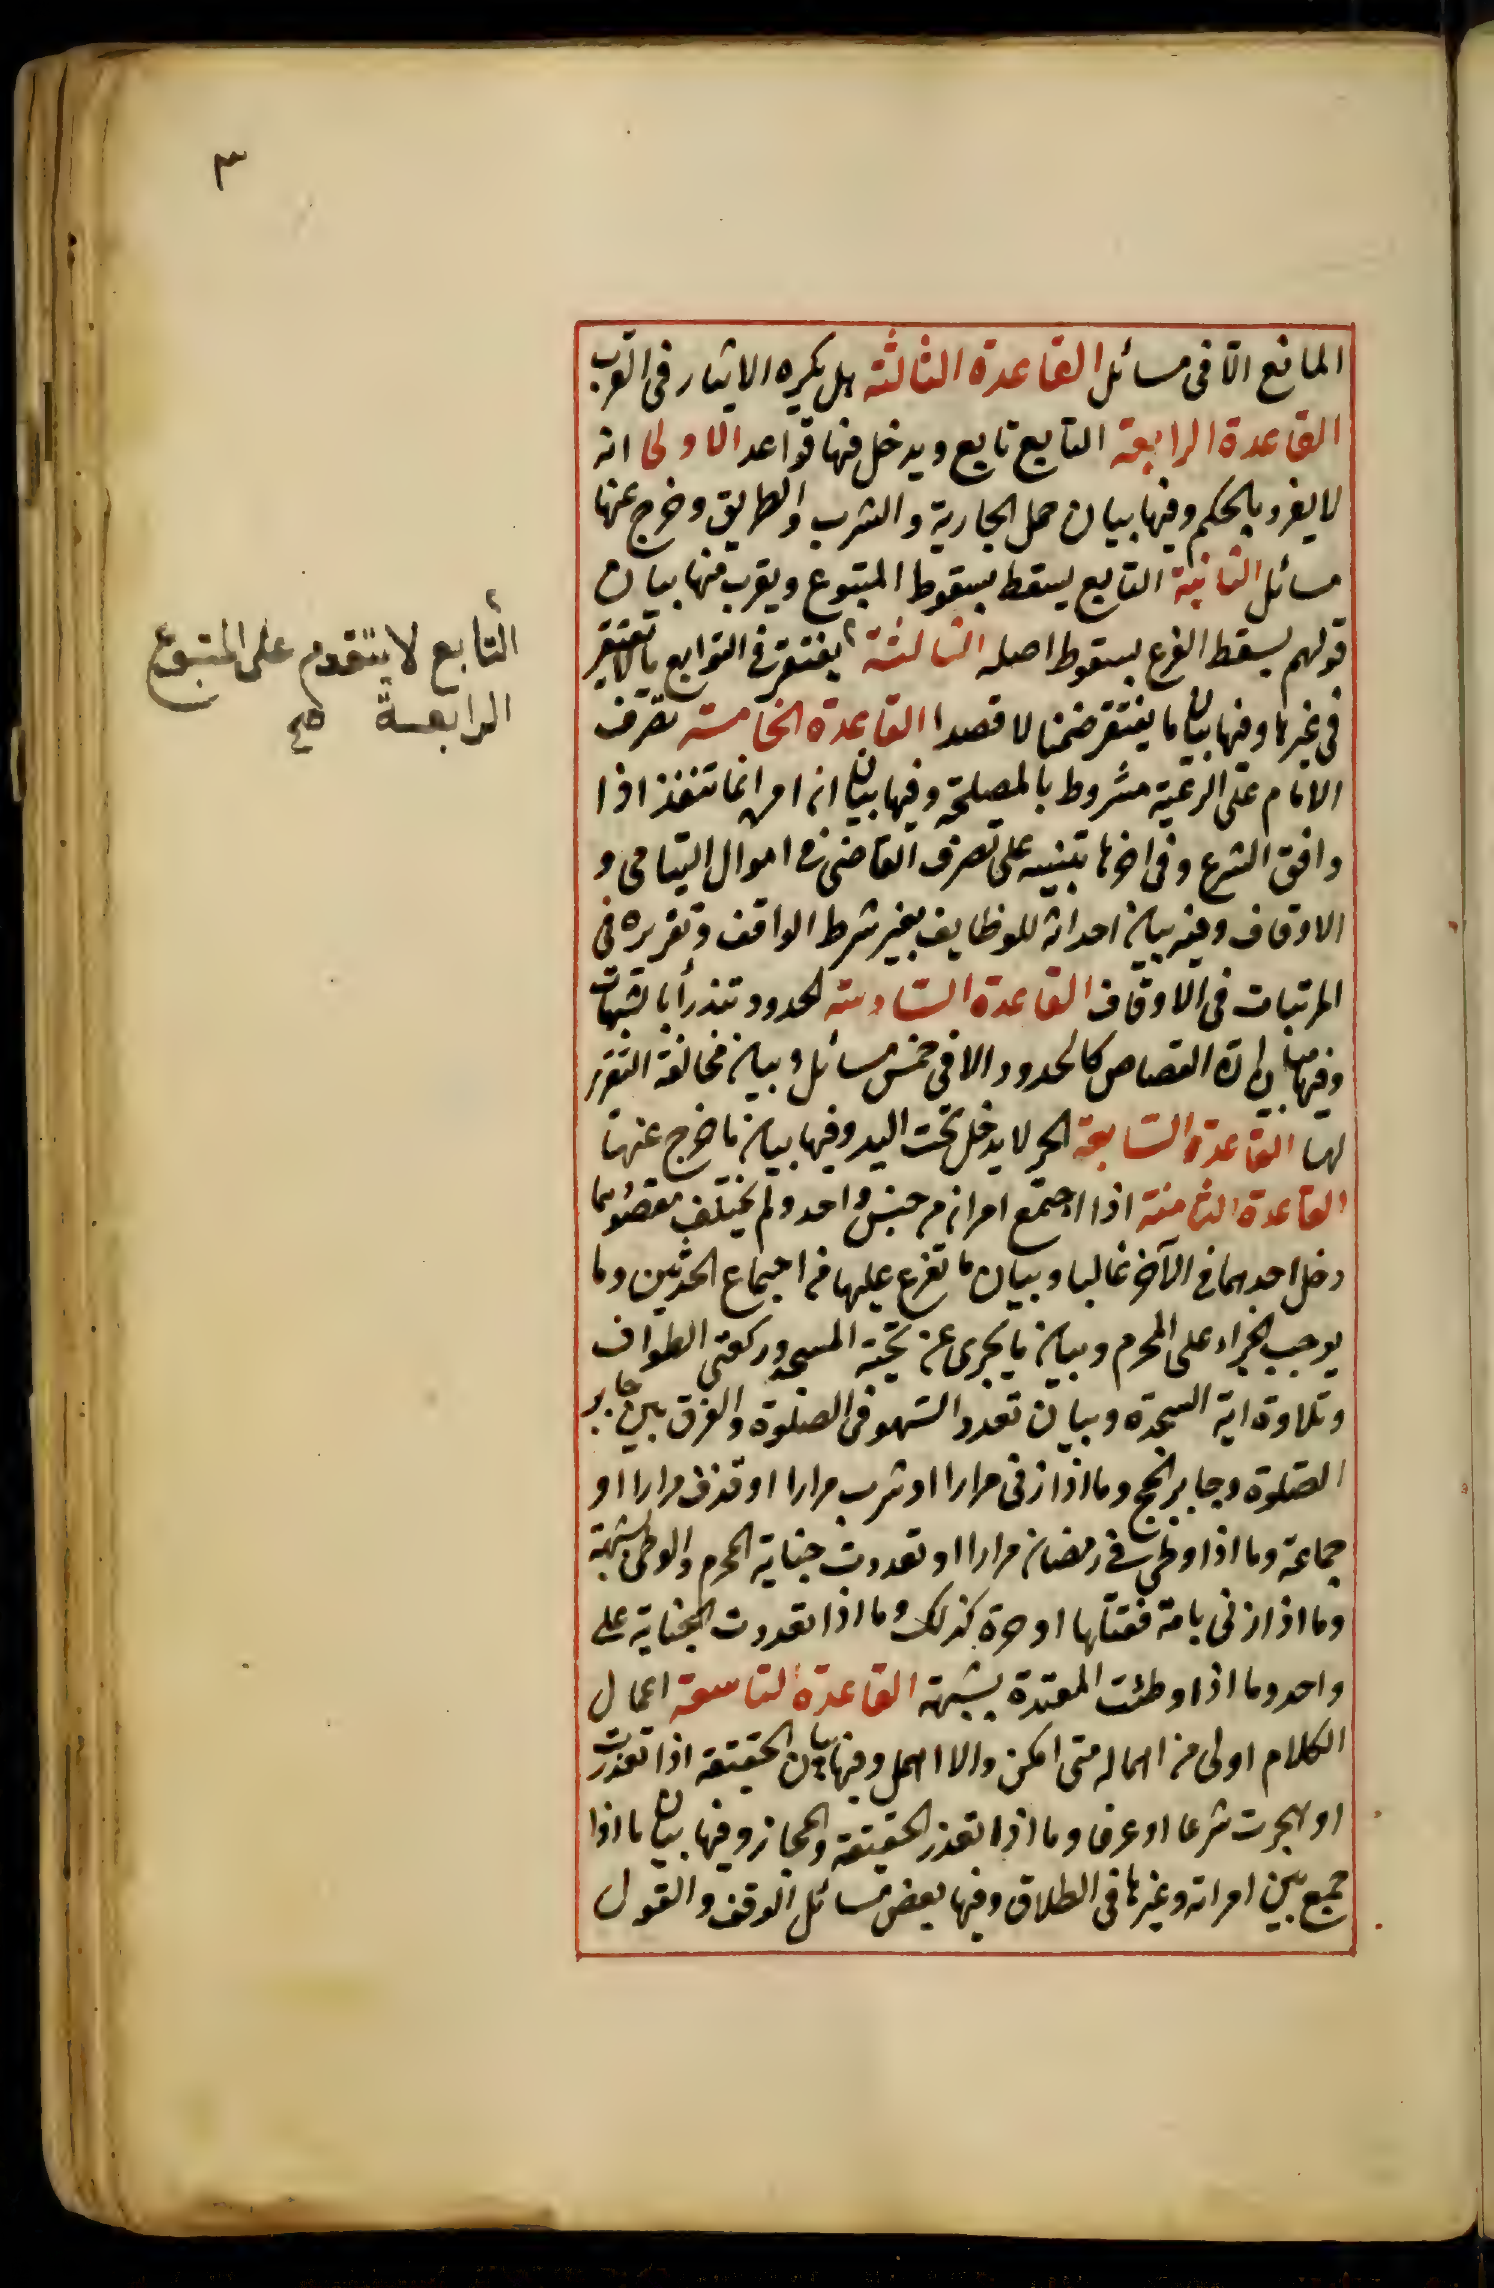 ٣
المانع الا فى مسائل القاعدة الثالثة هل يكره الايثار فى القرب
القاعدة الرابعة التابع تابع ويدخل فيها قواعد الاولى انه
لا يفرد بالحكم وفيها بيان حمل الجارية والشرب والطريق وخرج عنها
مسائل الثانية التابع يسقط بسقوط المتبوع ويقرب منها بيان
قولهم يسقط الفرع بسقوط اصله الثالثة يغتفر فى التوابع ما لا يغتفر
فى غيرها وفيها بيان ما يغتفر ضمنا لا قصدا القاعدة الخامسة تصرف
الامام على الرعية مشروط بالمصلحة وفيها بيان انه امره انما تنفذ اذا
وافق الشرع وفى اخرها تنبيه على تصرف القاضى فى اموال اليتامى و
الاوقاف وفيه بيان احداثه للوظايف بغير شرط الواقف وتقريره فى
المرتبات فى الاوقاف القاعدة السادسة الحدود تندرأ بالشبهات
وفيها بيان ان القصاص كالحدود الا فى خمس مسائل وبيان مخالفة التعزير
لها القاعدة السابعة الحر لا يدخل تحت اليد وفيها بيان ما خرج عنها
القاعدة الثامنة اذا اجتمع امران من جنس واحد ولم يختلف مقصودهما
دخل احدهما فى الآخر غالبا وبيان ما تفرع عليها من اجتماع الحدثين وما
يوجب الجزاء على المحرم وبيان ما يجزى عن تحية المسجد وركعتى الطواف
وتلاوة اية السجدة وبيان تعدد السهو فى الصلوة والفرق بين جابر
الصلوة وجابر الحج وما اذا زنى مرارا او شرب مرارا او قذف مرارا او
جماعة وما اذا وطئ فى رمضان مرارا او تعددت جناية المحرم والوطئ بشبهة
وما اذا زنى بامة فقتلها او حرة كذلك وما اذا تعددت الجناية على
واحد وما اذا وطئت المعتدة بشبهة القاعدة التاسعة اعمال
الكلام اولى من اهماله متى امكن والا اهمل وفيها بيان الحقيقة اذا تعذرت
او هجرت شرعا او عرفا وما اذا تعذر الحقيقة والمجاز وفيها بيان ما اذا
جمع بين امراته وغيرها فى الطلاق وفيها بعض مسائل الوقف والقول
التابع لا يتقدم على المتبوع
الرابعة صح